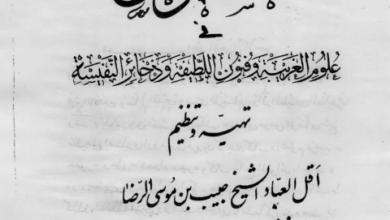 في
علوم الغريبة وفنون اللطيفة وذخائر النفيسة
تهيه وتنظيم
أقل العباد الشيخ حبيب بن موسى الرضا